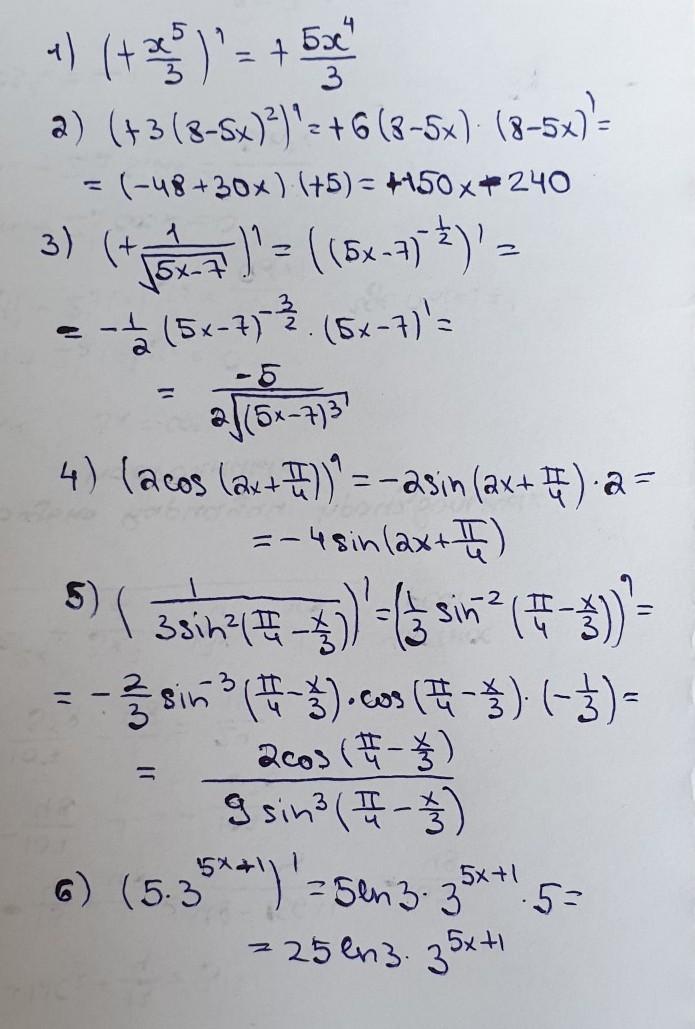 1) (+x⁵/3)' = +5x⁴/3
2) (+3(8-5x)²)' = +6(8-5x)·(8-5x)' =
= (-48+30x)·(+5) = +150x-240
3) (+1/√(5x-7))' = ((5x-7)^(-1/2))' =
= -1/2 (5x-7)^(-3/2)·(5x-7)' =
= -5/(2√((5x-7)³))
4) (2cos(2x+π/4))' = -2sin(2x+π/4)·2 =
= -4sin(2x+π/4)
5) (1/(3sin²(π/4-x/3)))' = (1/3 sin⁻²(π/4-x/3))' =
= -2/3 sin⁻³(π/4-x/3)·cos(π/4-x/3)·(-1/3) =
= 2cos(π/4-x/3)/(9sin³(π/4-x/3))
6) (5·3^(5x+1))' = 5ln3·3^(5x+1)·5 =
= 25ln3·3^(5x+1)